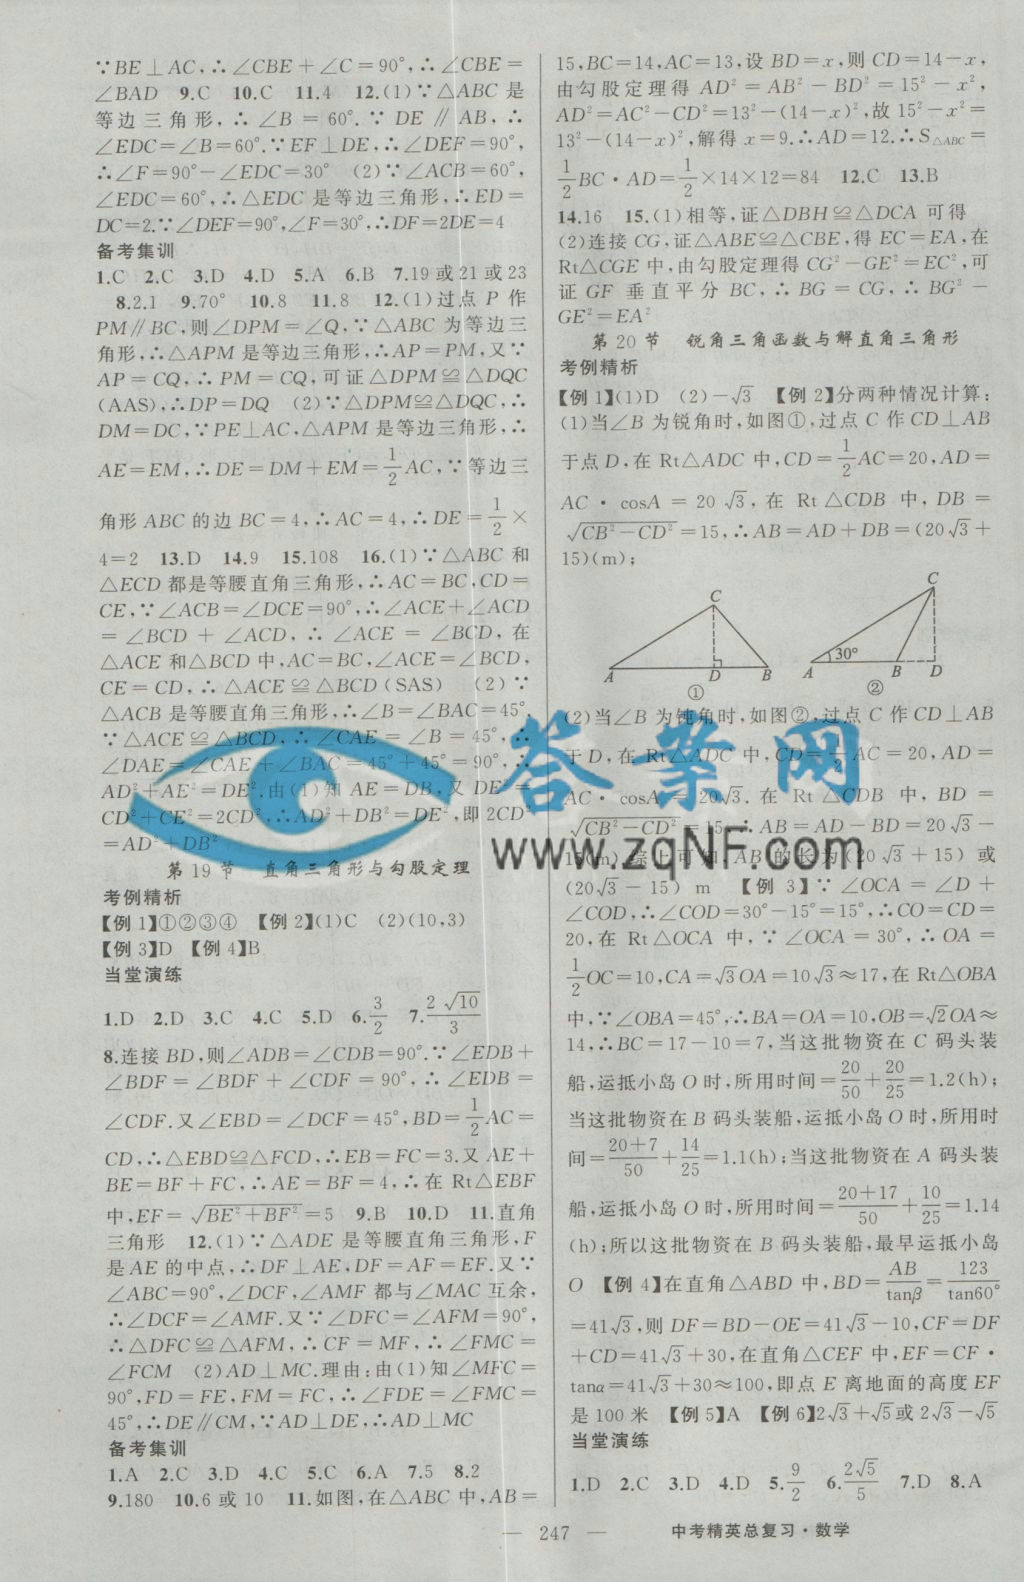 ∵BE⊥AC,∴∠CBE+∠C=90°,∴∠CBE=
∠BAD 9.C 10.C 11.4 12.(1)∵△ABC是
等边三角形,∴∠B=60°.∵DE∥AB,∴
∠EDC=∠B=60°.∵EF⊥DE,∴∠DEF=90°,
∴∠F=90°-∠EDC=30° (2)∵∠ACB=60°,
∠EDC=60°,∴△EDC是等边三角形,∴ED=
DC=2.∵∠DEF=90°,∠F=30°,∴DF=2DE=4
备考集训
1.C 2.C 3.D 4.D 5.A 6.B 7.19或21或23
8.2.1 9.70° 10.8 11.8 12.(1)过点P作
PM∥BC,则∠DPM=∠Q,∵△ABC为等边三
角形,∴△APM是等边三角形,∴AP=PM,又∵
AP=CQ,∴PM=CQ,可证△DPM≌△DQC
(AAS),∴DP=DQ (2)∵△DPM≌△DQC,∴
DM=DC,∵PE⊥AC,△APM是等边三角形,∴
AE=EM,∴DE=DM+EM=1/2AC,∵等边三
角形ABC的边BC=4,∴AC=4,∴DE=1/2×
4=2 13.D 14.9 15.108 16.(1)∵△ABC和
△ECD都是等腰直角三角形,∴AC=BC,CD=
CE,∵∠ACB=∠DCE=90°,∴∠ACE+∠ACD
=∠BCD+∠ACD,∴∠ACE=∠BCD,在
△ACE和△BCD中,AC=BC,∠ACE=∠BCD,
CE=CD,∴△ACE≌△BCD(SAS) (2)∵
△ACB是等腰直角三角形,∴∠B=∠BAC=45°.
∵△ACE≌△BCD,∴∠CAE=∠B=45°,∴
∠DAE=∠CAE+∠BAC=45°+45°=90°,∴
AD²+AE²=DE².由(1)知AE=DB,又DE²=
CD²+CE²=2CD²,∴AD²+DB²=DE²,即2CD²
=AD²+DB²
第19节 直角三角形与勾股定理
考例精析
【例1】①②③④ 【例2】(1)C (2)(10,3)
【例3】D 【例4】B
当堂演练
1.D 2.D 3.C 4.C 5.D 6.3/2 7.2√10/3
8.连接BD,则∠ADB=∠CDB=90°.∵∠EDB+
∠BDF=∠BDF+∠CDF=90°,∴∠EDB=
∠CDF.又∠EBD=∠DCF=45°,BD=1/2AC=
CD,∴△EBD≌△FCD,∴EB=FC=3.又AE+
BE=BF+FC,∴AE=BF=4,∴在Rt△EBF
中,EF=√(BE²+BF²)=5 9.B 10.D 11.直角
三角形 12.(1)∵△ADE是等腰直角三角形,F
是AE的中点,∴DF⊥AE,DF=AF=EF.又∵
∠ABC=90°,∠DCF,∠AMF都与∠MAC互余,
∴∠DCF=∠AMF.又∵∠DFC=∠AFM=90°,
∴△DFC≌△AFM,∴CF=MF,∴∠FMC=
∠FCM (2)AD⊥MC.理由:由(1)知∠MFC=
90°,FD=FE,FM=FC,∴∠FDE=∠FMC=
45°,∴DE∥CM,∵AD⊥DE,∴AD⊥MC
备考集训
1.A 2.C 3.D 4.C 5.C 6.A 7.5 8.2
9.180 10.6或10 11.如图,在△ABC中,AB=
15,BC=14,AC=13,设BD=x,则CD=14-x,
由勾股定理得AD²=AB²-BD²=15²-x²,
AD²=AC²-CD²=13²-(14-x)²,故15²-x²=
13²-(14-x)²,解得x=9.∴AD=12.∴S△ABC=
1/2BC·AD=1/2×14×12=84 12.C 13.B
14.16 15.(1)相等,证△DBH≌△DCA可得
(2)连接CG,证△ABE≌△CBE,得EC=EA,在
Rt△CGE中,由勾股定理得CG²-GE²=EC²,可
证GF垂直平分BC,∴BG=CG,∴BG²-
GE²=EA²
第20节 锐角三角函数与解直角三角形
考例精析
【例1】(1)D (2)-√3 【例2】分两种情况计算:
(1)当∠B为锐角时,如图①,过点C作CD⊥AB
于点D,在Rt△ADC中,CD=1/2AC=20,AD=
AC·cosA=20√3,在Rt△CDB中,DB=
√(CB²-CD²)=15,∴AB=AD+DB=(20√3+
15)(m);
C
A D B
①
C
30°
A B D
②
(2)当∠B为钝角时,如图②,过点C作CD⊥AB
于D,在Rt△ADC中,CD=1/2AC=20,AD=
AC·cosA=20√3.在Rt△CDB中,BD=
√(CB²-CD²)=15,∴AB=AD-BD=(20√3-
15)(m).综上可知,AB的长为(20√3+15)或
(20√3-15)m 【例3】∵∠OCA=∠D+
∠COD,∴∠COD=30°-15°=15°,∴CO=CD=
20,在Rt△OCA中,∵∠OCA=30°,∴OA=
1/2OC=10,CA=√3OA=10√3≈17,在Rt△OBA
中,∵∠OBA=45°,∴BA=OA=10,OB=√2OA≈
14,∴BC=17-10=7,当这批物资在C码头装
船,运抵小岛O时,所用时间=20/50+20/25=1.2(h);
当这批物资在B码头装船,运抵小岛O时,所用时
间=(20+7)/50+14/25=1.1(h);当这批物资在A码头装
船,运抵小岛O时,所用时间=(20+17)/50+10/25=1.14
(h);所以这批物资在B码头装船,最早运抵小岛
O 【例4】在直角△ABD中,BD=AB/tanβ=123/tan60°
=41√3,则DF=BD-OE=41√3-10,CF=DF
+CD=41√3+30,在直角△CEF中,EF=CF·
tanα=41√3+30≈100,即点E离地面的高度EF
是100米 【例5】A 【例6】2√3+√5或2√3-√5
当堂演练
1.D 2.C 3.D 4.D 5.9/2 6.2√5/5 7.D 8.A
— 247 — 中考精英总复习·数学
答案网
www.zqNF.com